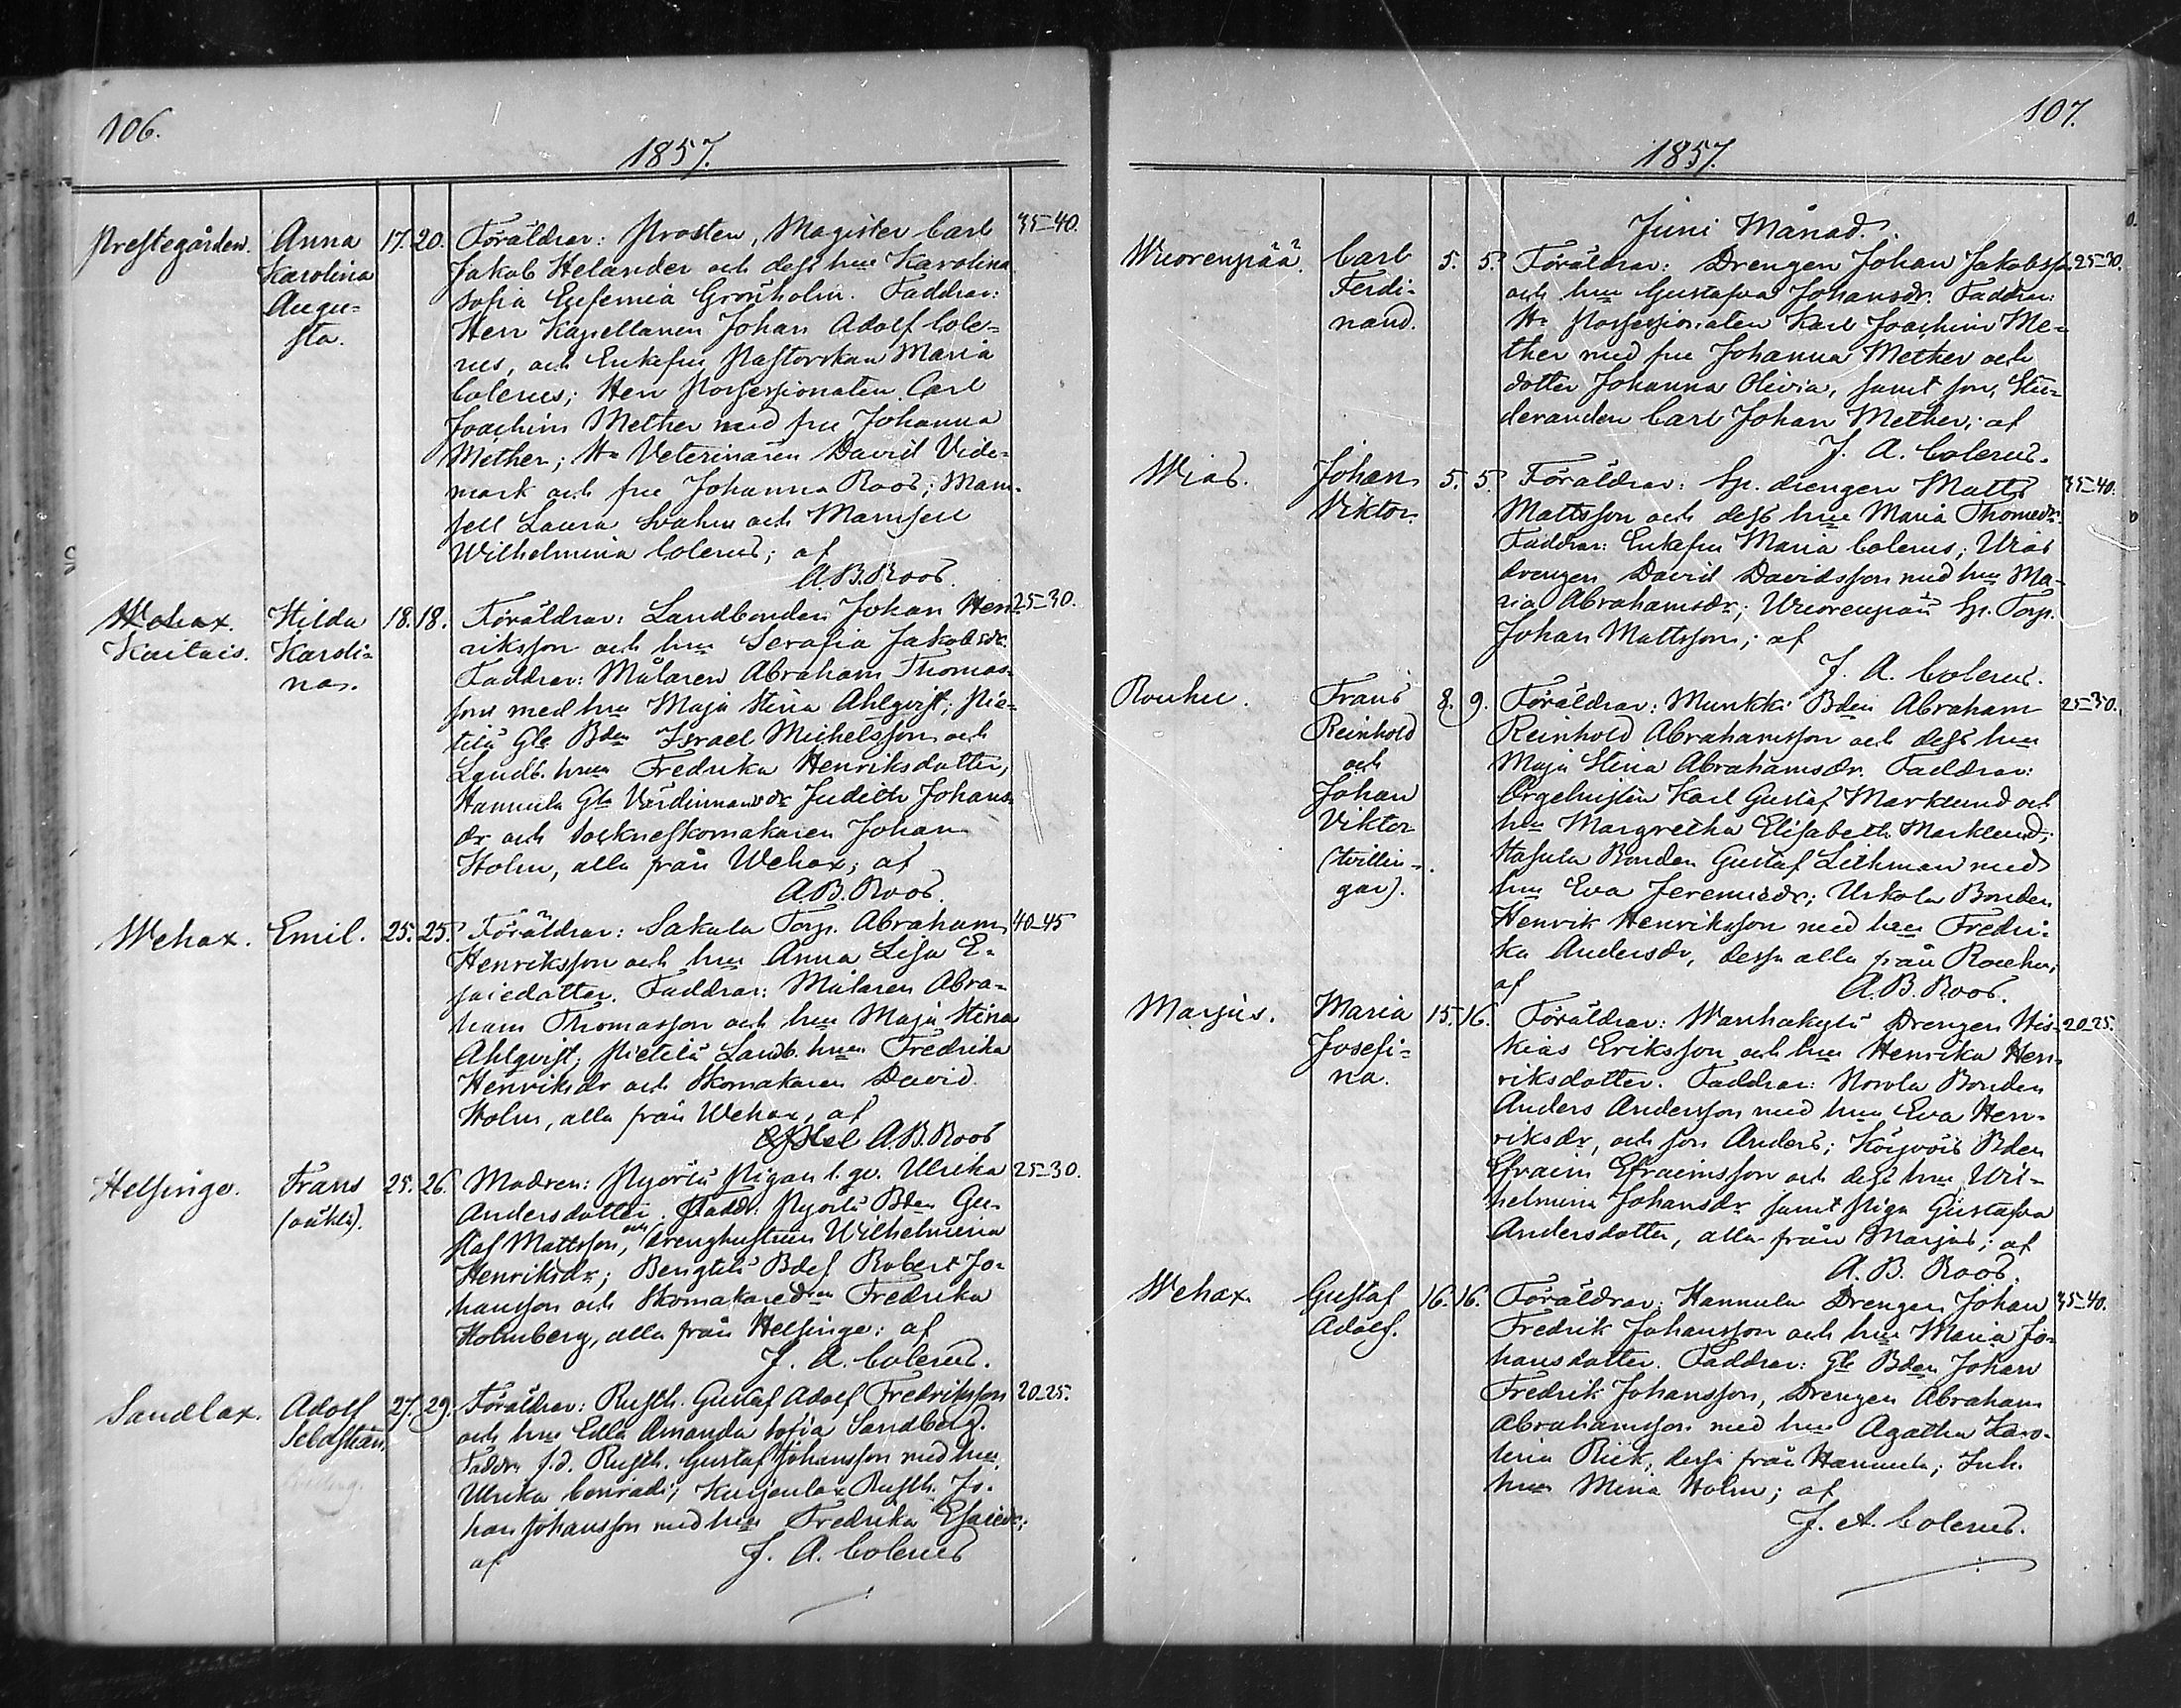 106.
1857.
Prestegården. Anna 17. 20. Föräldrar: Prosten, Magister Carl 35-40.
Karolina Jakob Helander och dess hu Karolina
Augu= Sofia Eufemia Grönholm. Faddrar:
sta. Herr Kapellanen Johan Adolf Cole=
rus, och Enkefru Pastorskan Maria
Colerus; Herr Possessionaten Carl
Joachim Mether med fru Johanna
Mether; Hr Veterinären David Vide=
mark och fru Johanna Roos; Mam=
sell Laura Svahn och Mamsell
Wilhelmina Colerus; af
A. B. Roos.
Wehax. Hilda 18. 18. Föräldrar: Landbonden Johan Hen 25-30.
Kaitais. Karoli= riksson och hu Serafia Jakobsdr.
na. Faddrar: Målaren Abraham Thomas=
son med hu Maja Stina Ahlqvist; Pie=
tilä Gle Bden Israel Michelsson och
Landb. hun Fredrika Henriksdotter,
Hannula Gla Värdinnans dr Judith Johans=
dr och Sockneskomakaren Johan
Holm, alla från Wehax; af
A. B. Roos.
Wehax. Emil. 25. 25. Föräldrar: Sakula Torp. Abraham 40-45
Henriksson och hu Anna Lisa E=
saiedotter. Faddrar: Målaren Abra=
ham Thomasson och hu Maja Stina
Ahlqvist; Pietilä Landb. hun Fredrika
Henriksdr och Skomakaren David
Holm, alla från Wehax, af
A. B. Roos
Helsinge. Frans 25. 26. Modren: Pigan l. gr. Ulrika 25-30.
(oäkta). Andersdotter. Fadd: Bden Gu=
staf Mattsson, och drenghustrun Wilhelmina
Henriksdr; Bengtilä Bdes. Robert Jo=
hansson och Skomakaredrn Fredrika
Holmberg, alla från Helsinge: af
J. A. Colerus.
Sandlax. Adolf 27. 29. Föräldrar: Rusth. Gustaf Adolf Fredriksson 20-25.
Sebastian och hu Edla Amanda Sofia Sandberg.
Faddra f.d. Rusth. Gustaf Johansson med hu
Ulrika Conradi; Kurjenlax Rusth. Jo=
han Johansson med hu Fredrika Esaiedr;
af J. A. Colerus
107.
1857.
Juni Månad.
Wuorenpää. Carl 5. 5. Föräldrar: Drengen Johan Jakobsson 25-30.
Ferdi= och hu Gustafva Johansdr. Faddrar:
nand. Hr Possessionaten Karl Joachim Me=
ther med fru Johanna Mether och
dotter Johanna Olivia, samt son, Stu=
deranden Carl Johan Mether; af
J. A. Colerus.
Wias. Johan 5. 5. Föräldrar: Sp. drengen Matts 35-40.
Viktor. Mattsson och dess hu Maria Thomedr.
Faddrar: Enkefru Maria Colerus; Wias
drengen David Davidsson med hu Ma=
ria Abrahamsdr; Wuorenpää Sp. Torp.
Johan Mattsson; af
J. A. Colerus.
Rouhu. Frans 8. 9. Föräldrar: Munkki Bden Abraham 25-30.
Reinhold Reinhold Abrahamsson och dess hu
och Maja Stina Abrahamsdr. Faddrar:
Johan Orgelnisten Karl Gustaf Marklund och
Viktor hu Margretha Elisabeth Marklund;
(tvillin= Bonden Gustaf Lithman med
gar). hu Eva Jeremiedr; Uskola Bonden
Henrik Henriksson med hu Fredri=
ka Andersdr, dessa alla från Rouhu;
af A. B. Roos.
Marjus. Maria 15. 16. Föräldrar: Wanhakylä Drengen His= 20-25.
Josefi= kias Eriksson och hu Henrika Hen=
na. riksdotter. Faddrar: Norola Bonden
Anders Andersson med hu Eva Hen=
riksdr, och son Anders; Köijvöis Bden
Efraim Efraimsson och dess hu Wil=
helmina Johansdr samt Piga Gustafva
Andersdotter, alla från Marjus; af
A. B. Roos.
Wehax. Gustaf 16. 16. Föräldrar: Hannula Drengen Johan 35-40.
Adolf. Fredrik Johansson och hu Maria Jo=
hansdotter. Faddrar: Gle Bden Johan
Fredrik Johansson, Drengen Abraham
Abrahamsson med hu Agatha Karo=
lina Rick, dessa från Hannula; Inh.
hun Mina Holm; af
J. A. Colerus.